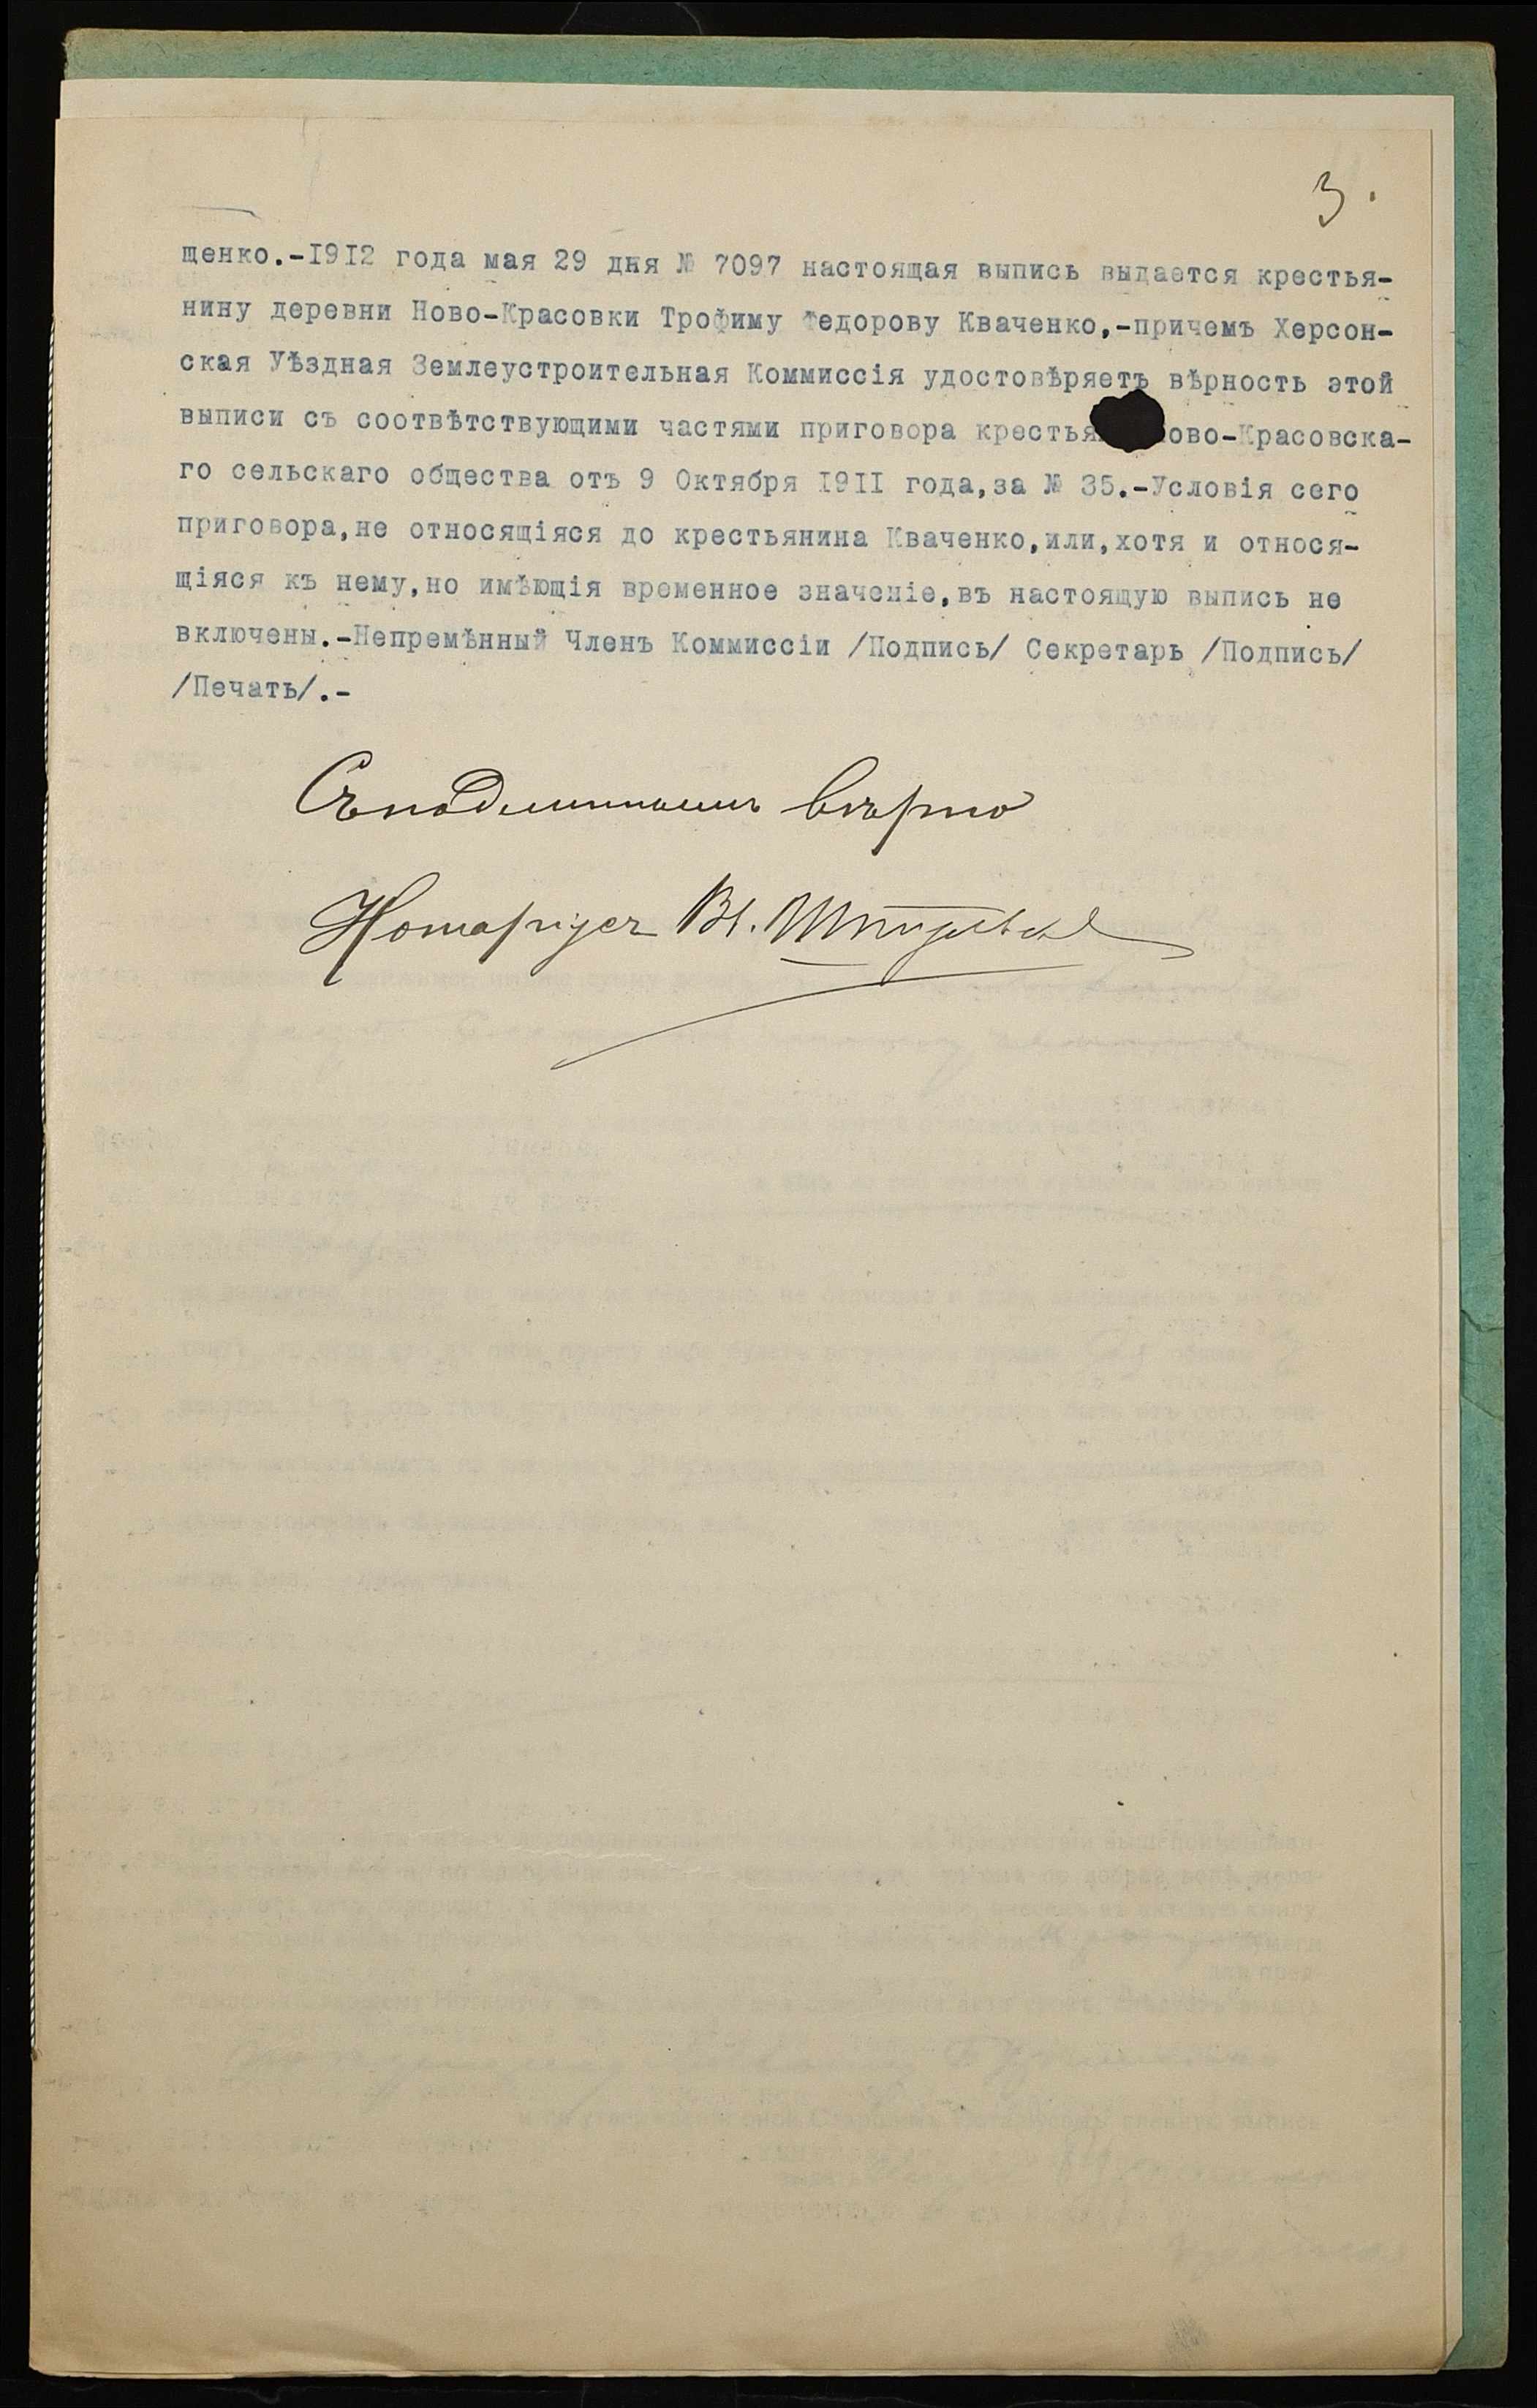 3.
щенко.-1912 года мая 29 дня № 7097 настоящая выпись выдается крестья-
нину деревни Ново-Красовки Трофиму Федорову Кваченко,-причемъ Херсон-
ская Уѣздная Землеустроительная Коммиссія удостовѣряетъ вѣрность этой
выписи съ соотвѣтствующими частями приговора крестья ово-Красовска-
го сельскаго общества отъ 9 Октября 1911 года,за № 35.-Условія сего
приговора,не относящіяся до крестьянина Кваченко,или,хотя и относя-
щіяся къ нему,но имѣющія временное значеніе,въ настоящую выпись не
включены.-Непремѣнный Членъ Коммиссіи /Подпись/ Секретарь /Подпись/
/Печать/.-
Съ подлиннымъ вѣрно
Нотаріусъ Вл.